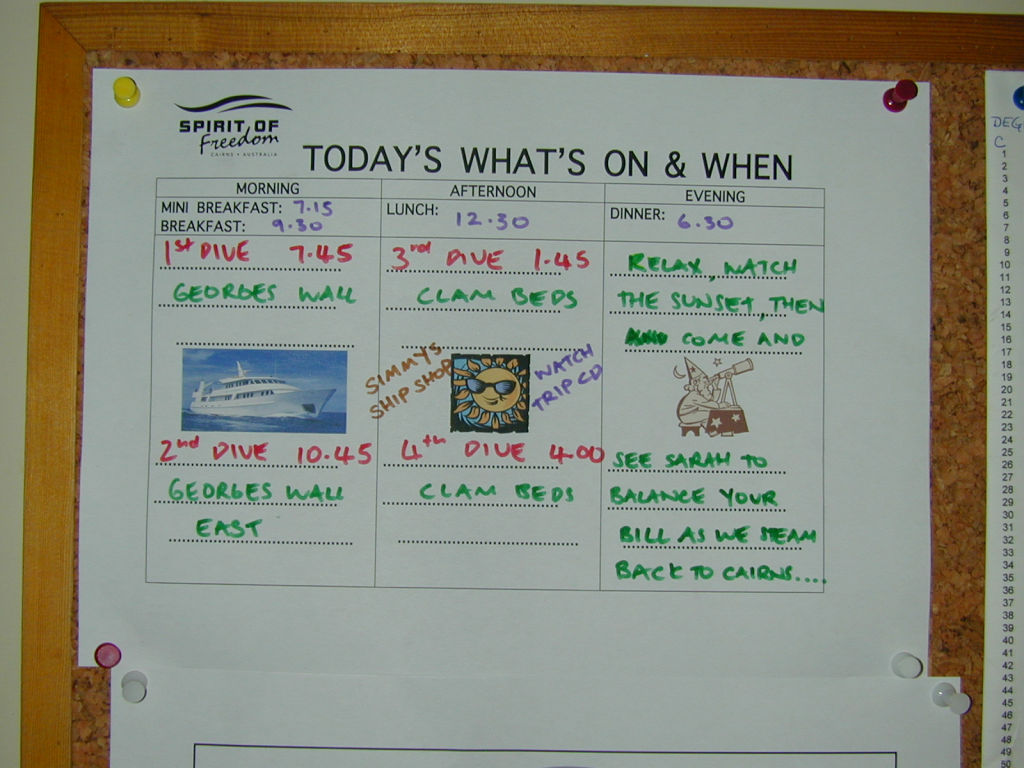 SPIRIT OF
Freedom
CAIRNS • AUSTRALIA
TODAY'S WHAT'S ON & WHEN
MORNING
MINI BREAKFAST: 7.15
BREAKFAST: 9.30
1st DIVE 7.45
GEORGES WALL
2nd DIVE 10.45
GEORGES WALL
EAST
AFTERNOON
LUNCH: 12.30
3rd DIVE 1.45
CLAM BEDS
SIMMY'S
SHIP SHOP
WATCH
TRIP CD
4th DIVE 4.00
CLAM BEDS
EVENING
DINNER: 6.30
RELAX, WATCH
THE SUNSET, THEN
COME AND
SEE SARAH TO
BALANCE YOUR
BILL AS WE STEAM
BACK TO CAIRNS....
DEG
C
1
2
3
4
5
6
7
8
9
10
11
12
13
14
15
16
17
18
19
20
21
22
23
24
25
26
27
28
29
30
31
32
33
34
35
36
37
38
39
40
41
42
43
44
45
46
47
48
49
50